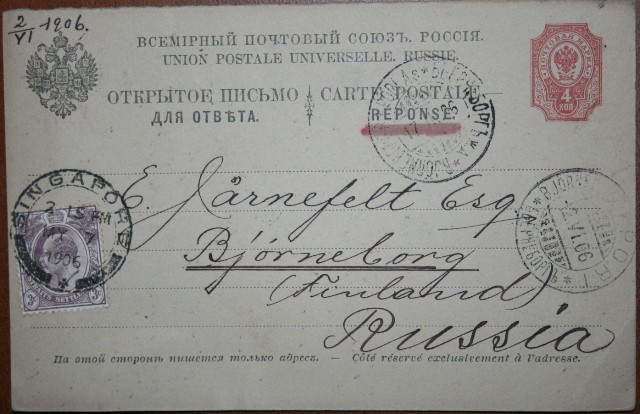 2/VI 1906.
ВСЕМІРНЫЙ ПОЧТОВЫЙ СОЮЗЪ. РОССІЯ.
UNION POSTALE UNIVERSELLE. RUSSIE.
ОТКРЫТОЕ ПИСЬМО
CARTE POSTALE
ДЛЯ ОТВѢТА.
RÉPONSE.
ПОЧТОВАЯ МАРКА
4
КОП
SINGAPORE
2 15 PM
MY 7
1906
3c 3c
E. Järnefelt Esq.
Björneborg
(Finland)
Russia
На этой сторонѣ пишется только адресъ. — Côté réservé exclusivement à l'adresse.